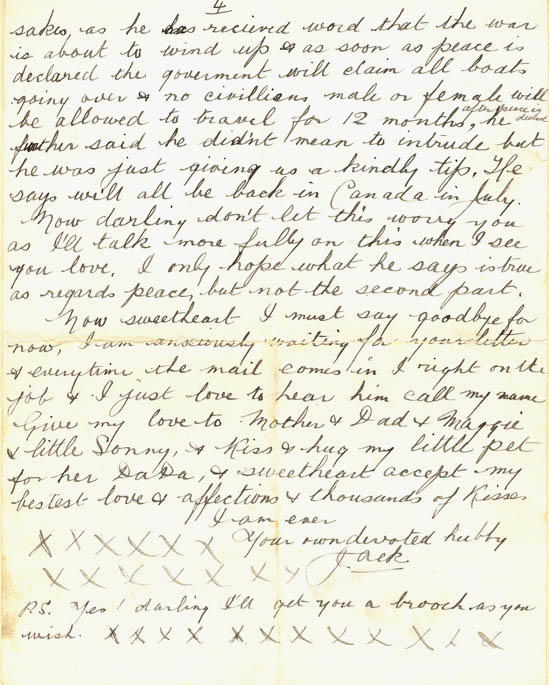 4
sakes, as he has recieved word that the war
is about to wind up & as soon as peace is
declared the goverment will claim all boats
going over & no civillians male or female will
after peace is declared
be allowed to travel for 12 months, he
further said he didn't mean to intrude but
he was just giving us a kindly tip. He
says will all be back in Canada in July.
Now darling don't let this worry you
as I'll talk more fully on this when I see
you love, I only hope what he says is true
as regards peace, but not the second part.
Now sweetheart I must say goodbye for
now, I am anxiously waiting for your letter
& everytime the mail comes in I right on the
job & I just love to hear him call my name
Give my love to Mother & Dad & Maggie
& little Sonny, & Kiss & hug my little pet
for her DaDa, & sweetheart accept my
bestest love & affections & thousands of Kisses
I am ever
X X X X X X Your own devoted hubby
Jack
X X X X X X X
P.S. Yes! darling I'll get you a brooch as you
wish. X X X X X X X X X X X